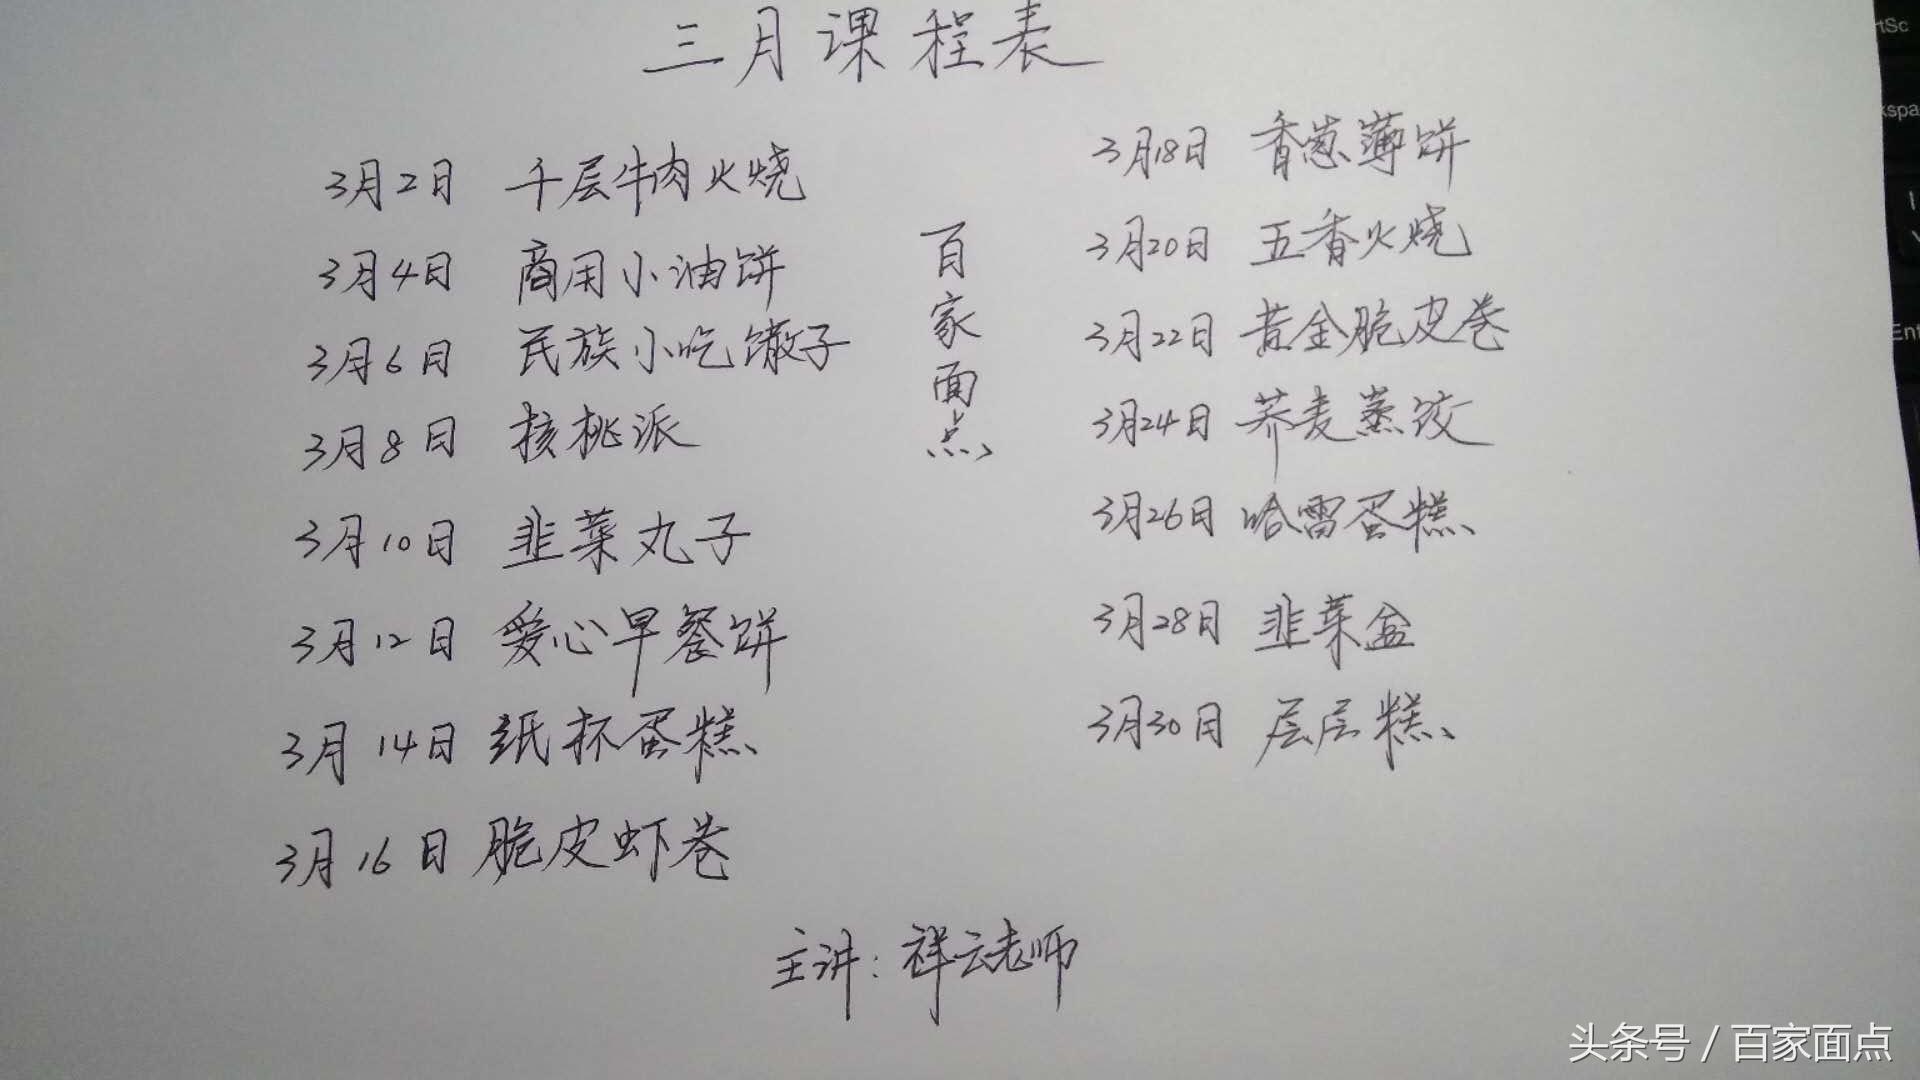 三月课程表
3月2日 千层牛肉火烧
3月4日 商用小油饼
3月6日 民族小吃馓子
3月8日 核桃派
3月10日 韭菜丸子
3月12日 爱心早餐饼
3月14日 纸杯蛋糕
3月16日 脆皮虾卷
百家面点
3月18日 香葱薄饼
3月20日 五香火烧
3月22日 黄金脆皮卷
3月24日 荞麦蒸饺
3月26日 哈雷蛋糕
3月28日 韭菜盒
3月30日 层层糕
主讲：祥云老师
头条号 / 百家面点
tSc
kspa
Ent